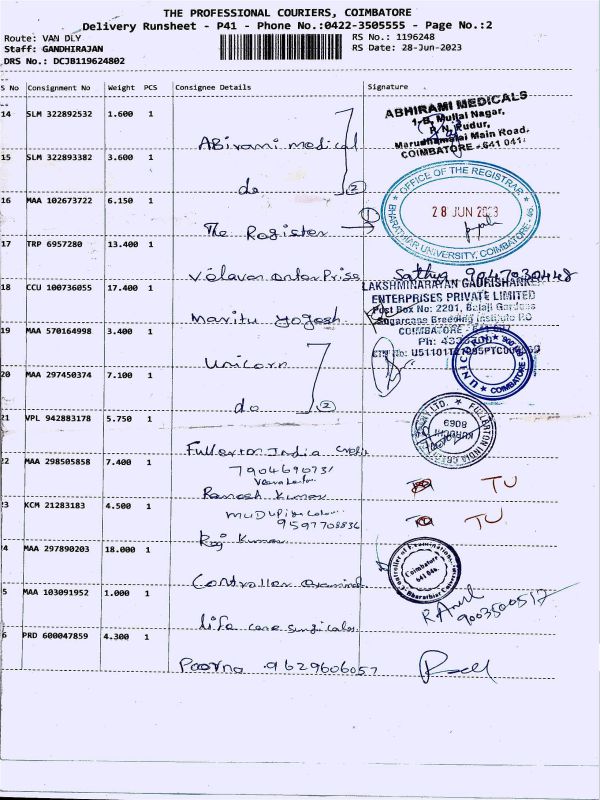 THE PROFESSIONAL COURIERS, COIMBATORE
Delivery Runsheet - P41 - Phone No.:0422-3505555 - Page No.:2
Route: VAN DLY
RS No.: 1196248
Staff: GANDHIRAJAN
RS Date: 28-Jun-2023
DRS No.: DCJB119624802
S No Consignment No Weight PCS Consignee Details Signature
14 SLM 322892532 1.600 1
ABirami medical
ABHIRAMI MEDICALS
1, B, Mullai Nagar,
P. N. Pudur,
Marudhamalai Main Road,
COIMBATORE - 641 041.
15 SLM 322893382 3.600 1
do (2)
OFFICE OF THE REGISTRAR
28 JUN 2023
BHARATHIAR UNIVERSITY, COIMBATORE - 46
16 MAA 102673722 6.150 1
The Register (1)
17 TRP 6957280 13.400 1
Velavan enterPrise
Sathya 9047030448
18 CCU 100736055 17.400 1
Marity yogesh
LAKSHMINARAYAN GAURISHANKER
ENTERPRISES PRIVATE LIMITED
Post Box No: 2201, Balaji Gardens
Sugarcane Breeding Institute P.O
COIMBATORE - 641 007
Ph:
19 MAA 570164998 3.400 1
Unicorn
COIMBATORE
20 MAA 297450374 7.100 1
do (2)
21 VPL 942883178 5.750 1
Fullerton India Credit
FULLERTON INDIA
22 MAA 298505858 7.400 1
7904690731
Ramesh Kumar
TU
23 KCM 21283183 4.500 1
9597708836
Raj Kumar
TU
24 MAA 297890203 18.000 1
Controller examind
Controller of Examinations
Coimbatore
641 046.
Bharathiar University
25 MAA 103091952 1.000 1
life care surgicals
9003500517
26 PRD 600047859 4.300 1
Poorna 9629606057